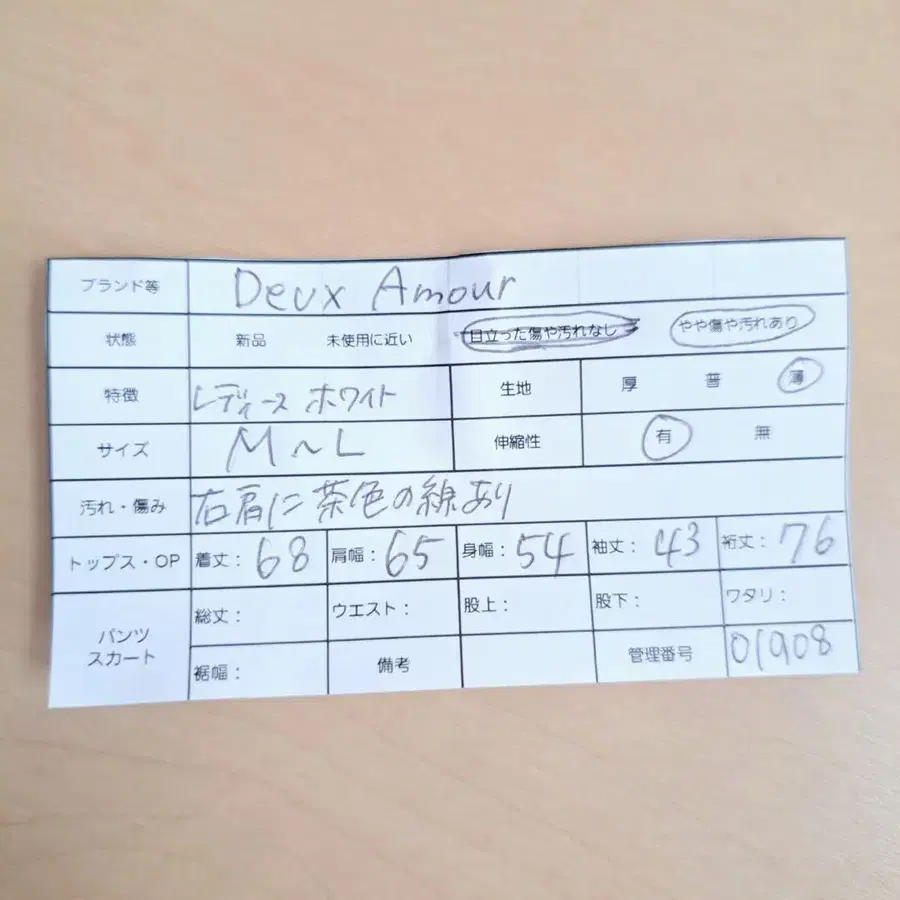 ブランド等 Deux Amour
状態 新品 未使用に近い 目立った傷や汚れなし やや傷や汚れあり
特徴 レディース ホワイト 生地 厚 普 薄
サイズ M~L 伸縮性 有 無
汚れ・傷み 右肩に茶色の線あり
トップス・OP 着丈: 68 肩幅: 65 身幅: 54 袖丈: 43 裄丈: 76
パンツ スカート 総丈: ウエスト: 股上: 股下: ワタリ:
裾幅: 備考 管理番号 01908